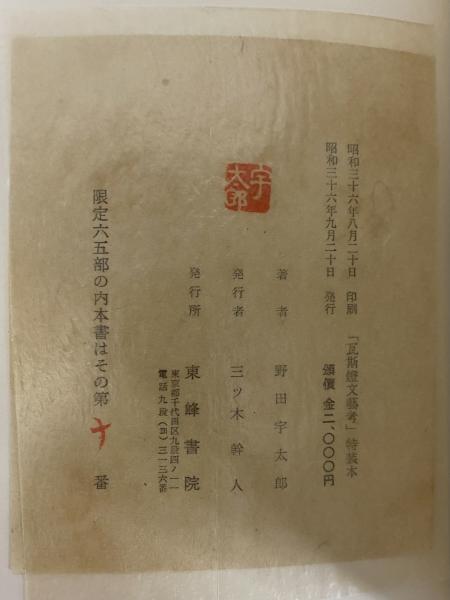 昭和三十六年八月二十日 印刷
昭和三十六年九月二十日 発行
「瓦斯燈文藝考」特装本
頒價 金二、〇〇〇円
著者 野田宇太郎
宇太郎
発行者 三ツ木幹人
発行所 東峰書院
東京都千代田区九段四ノ一一
電話九段(331)三一三六番
限定六五部の内本書はその第十番